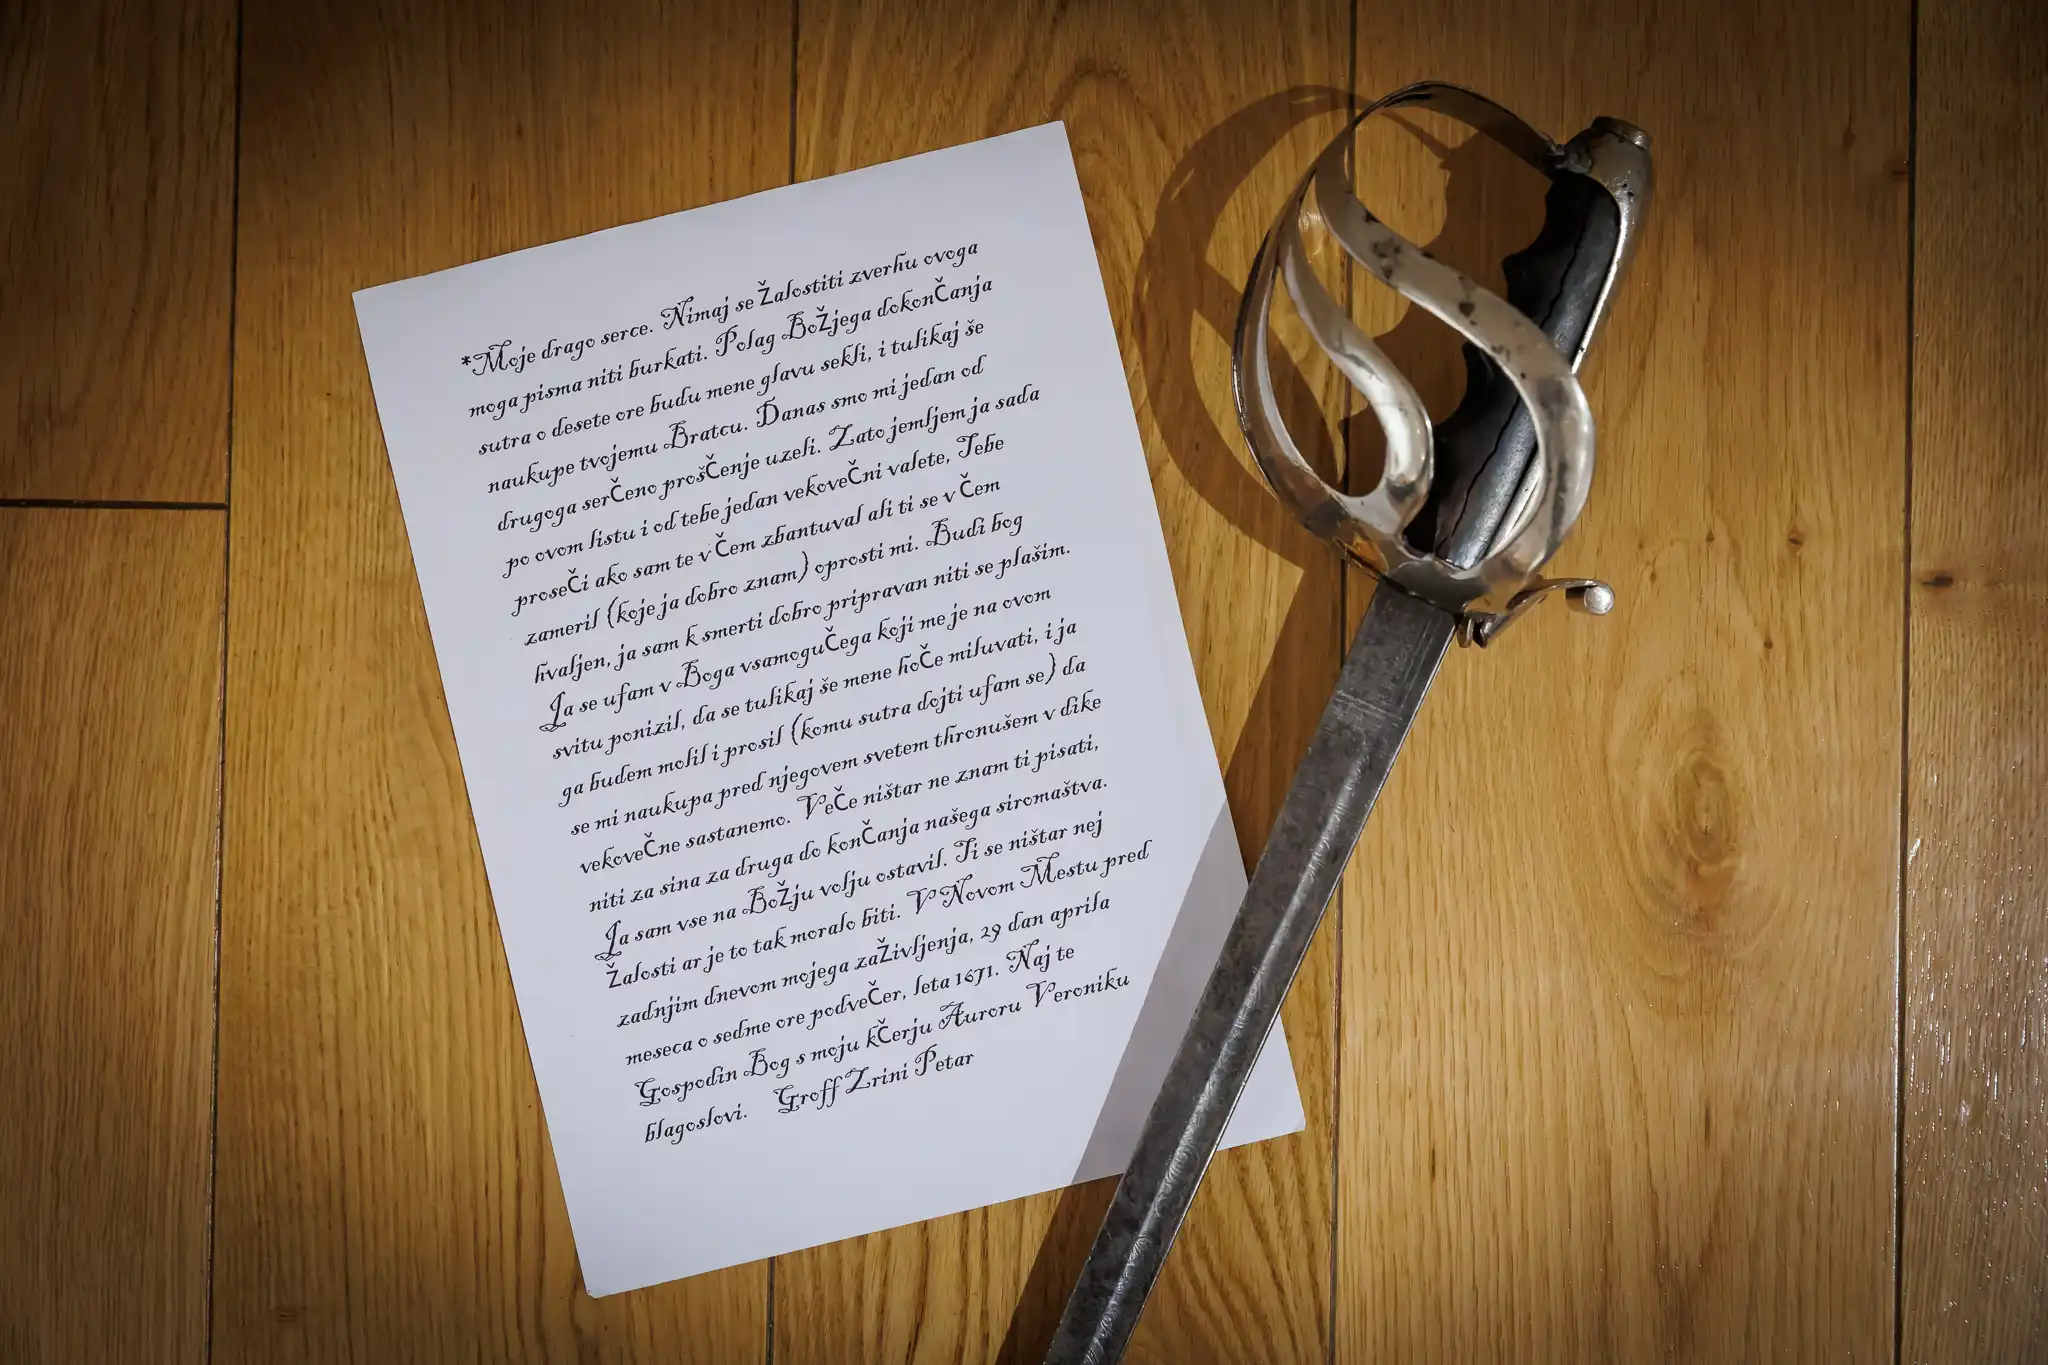 *Moje drago serce. Nimaj se Žalostiti zverhu ovoga
moga pisma niti burkati. Polag BoŽjega dokonČanja
sutra o desete ore budu mene glavu sekli, i tulikaj še
naukupe tvojemu Bratcu. Danas smo mi jedan od
drugoga serČeno prošČenje uzeli. Zato jemljem ja sada
po ovom listu i od tebe jedan vekoveČni valete, Tebe
proseČi ako sam te v Čem zbantuval ali ti se v Čem
zameril (koje ja dobro znam) oprosti mi. Budi bog
hvaljen, ja sam k smerti dobro pripravan niti se plašim.
Ja se ufam v Boga vsamoguČega koji me je na ovom
svitu ponizil, da se tulikaj še mene hoČe miluvati, i ja
ga budem molil i prosil (komu sutra dojti ufam se) da
se mi naukupa pred njegovem svetem thronušem v dike
vekoveČne sastanemo. VeČe ništar ne znam ti pisati,
niti za sina za druga do konČanja našega siromaštva.
Ja sam vse na BoŽju volju ostavil. Ti se ništar nej
Žalosti ar je to tak moralo biti. V Novom Mestu pred
zadnjim dnevom mojega zaŽivljenja, 29 dan aprila
meseca o sedme ore podveČer, leta 1671. Naj te
Gospodin Bog s moju kČerju Auroru Veroniku
blagoslovi. Groff Zrini Petar